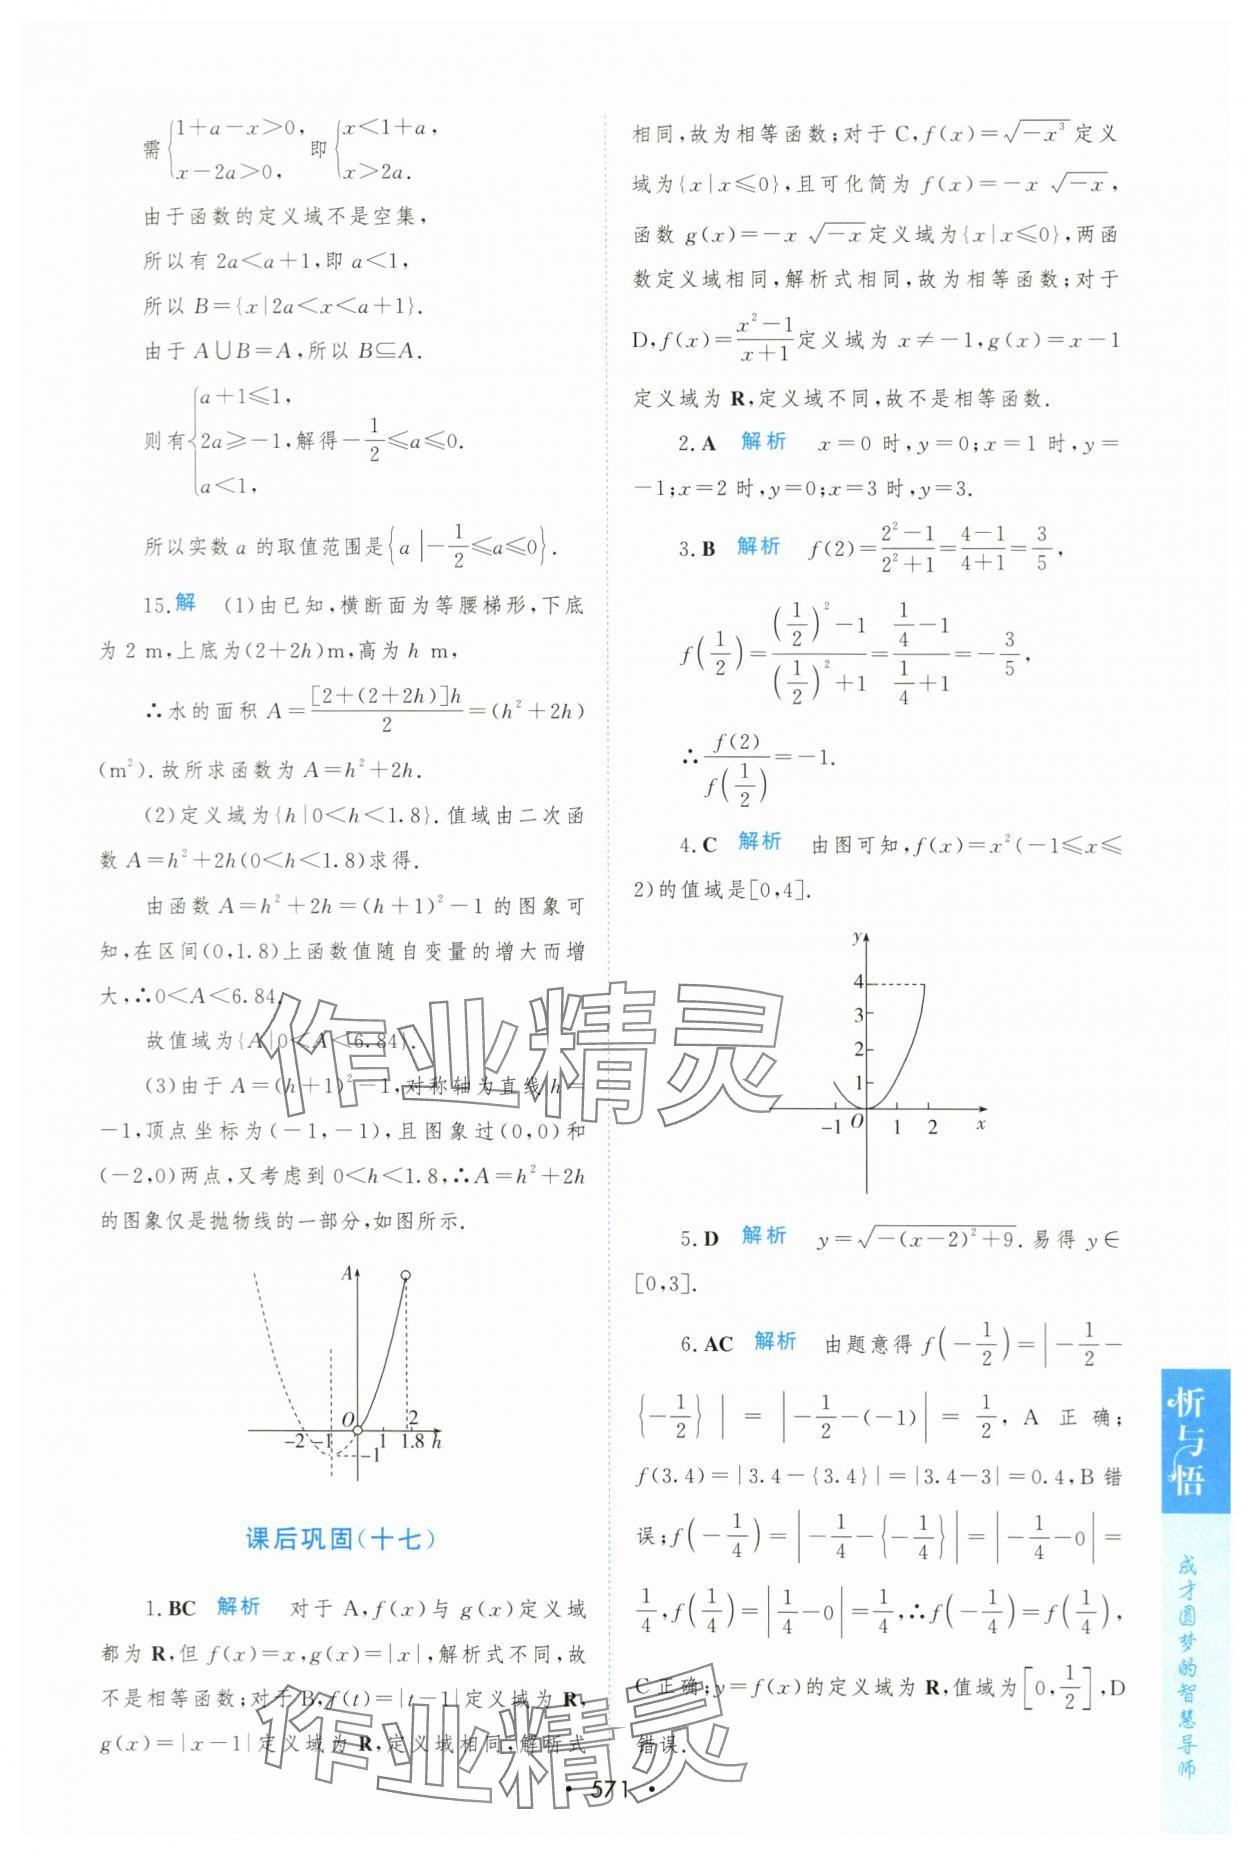 需{1+a-x>0, x-2a>0, 即{x<1+a, x>2a.
由于函数的定义域不是空集,
所以有 2a<a+1,即 a<1,
所以 B={x|2a<x<a+1}.
由于 A∪B=A,所以 B⊆A.
则有{a+1≤1, 2a≥-1, a<1, 解得-1/2≤a≤0.
所以实数 a 的取值范围是{a|-1/2≤a≤0}.
15.解 (1)由已知,横断面为等腰梯形,下底
为 2 m,上底为(2+2h)m,高为 h m,
∴水的面积 A=[2+(2+2h)]h/2=(h²+2h)
(m²).故所求函数为 A=h²+2h.
(2)定义域为{h|0<h<1.8}.值域由二次函
数 A=h²+2h(0<h<1.8)求得.
由函数 A=h²+2h=(h+1)²-1 的图象可
知,在区间(0,1.8)上函数值随自变量的增大而增
大,∴0<A<6.84.
故值域为{A|0<A<6.84}.
(3)由于 A=(h+1)²-1,对称轴为直线 h=
-1,顶点坐标为(-1,-1),且图象过(0,0)和
(-2,0)两点,又考虑到 0<h<1.8,∴A=h²+2h
的图象仅是抛物线的一部分,如图所示.
A
O 2
-2 -1 1 1.8 h
-1
课后巩固(十七)
1.BC 解析 对于 A,f(x)与 g(x)定义域
都为 R,但 f(x)=x,g(x)=|x|,解析式不同,故
不是相等函数;对于 B,f(t)=|t-1|定义域为 R,
g(x)=|x-1|定义域为 R,定义域相同,解析式
相同,故为相等函数;对于 C,f(x)=√(-x³)定义
域为{x|x≤0},且可化简为 f(x)=-x √(-x),
函数 g(x)=-x √(-x)定义域为{x|x≤0},两函
数定义域相同,解析式相同,故为相等函数;对于
D,f(x)=(x²-1)/(x+1)定义域为 x≠-1,g(x)=x-1
定义域为 R,定义域不同,故不是相等函数.
2.A 解析 x=0 时,y=0;x=1 时,y=
-1;x=2 时,y=0;x=3 时,y=3.
3.B 解析 f(2)=(2²-1)/(2²+1)=(4-1)/(4+1)=3/5,
f(1/2)=((1/2)²-1)/((1/2)²+1)=(1/4-1)/(1/4+1)=-3/5,
∴f(2)/f(1/2)=-1.
4.C 解析 由图可知,f(x)=x²(-1≤x≤
2)的值域是[0,4].
y
4
3
2
1
-1 O 1 2 x
5.D 解析 y=√(-(x-2)²+9).易得 y∈
[0,3].
6.AC 解析 由题意得 f(-1/2)=|-1/2-
{-1/2}|=|-1/2-(-1)|=1/2,A 正确;
f(3.4)=|3.4-{3.4}|=|3.4-3|=0.4,B 错
误;f(-1/4)=|-1/4-{-1/4}|=|-1/4-0|=
1/4,f(1/4)=|1/4-0|=1/4,∴f(-1/4)=f(1/4),
C 正确;y=f(x)的定义域为 R,值域为[0,1/2],D
错误.
析与悟
成才圆梦的智慧导师
• 571 •
作业精灵
作业精灵